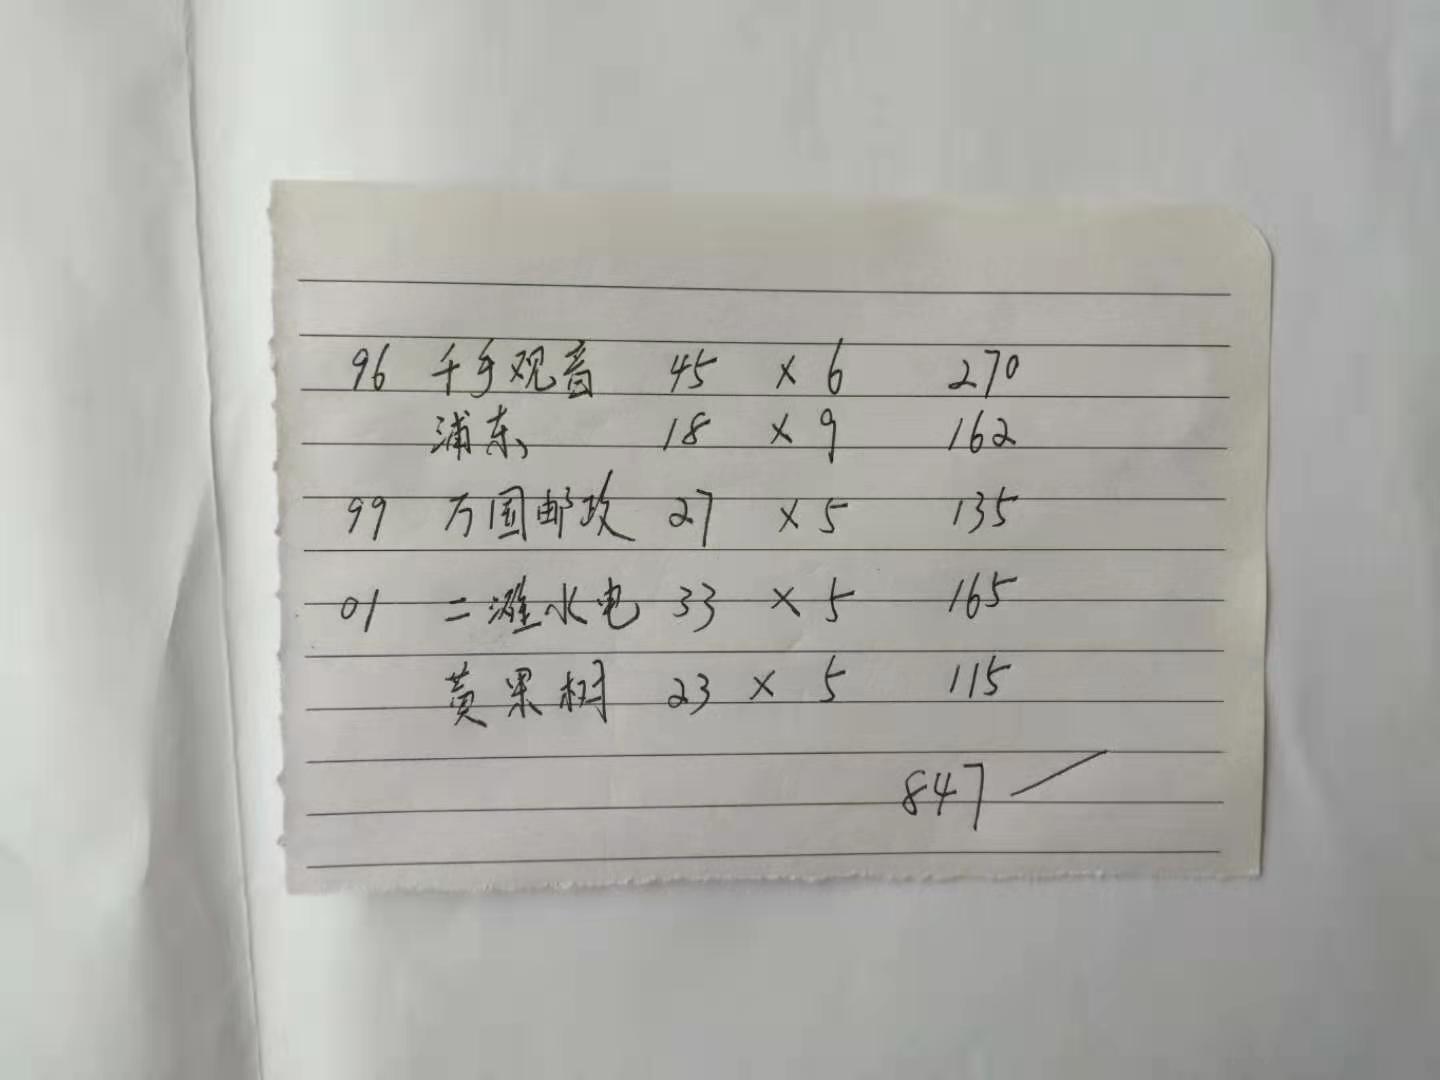 96 千手观音 45 × 6 270
浦东 18 × 9 162
99 万国邮政 27 × 5 135
01 二滩水电 33 × 5 165
黄果树 23 × 5 115
847